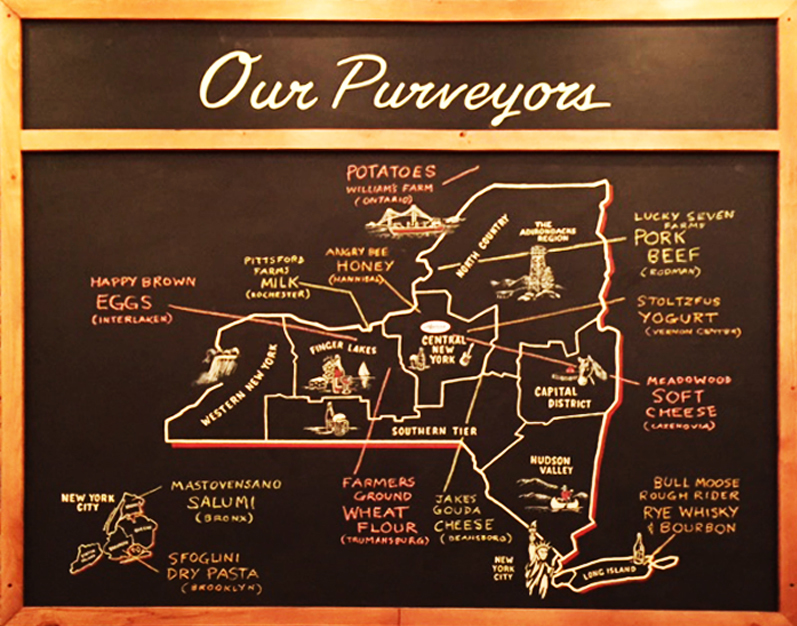 Our Purveyors
POTATOES
WILLIAM'S FARM
(ONTARIO)
LUCKY SEVEN
FARMS
PORK
BEEF
(RODMAN)
NORTH COUNTRY
THE
ADIRONDACKS
REGION
ANGRY BEE
HONEY
(HANNIBAL)
PITTSFORD
FARMS
MILK
(ROCHESTER)
HAPPY BROWN
EGGS
(INTERLAKEN)
STOLTZFUS
YOGURT
(VERNON CENTER)
WESTERN NEW YORK
FINGER LAKES
CENTRAL
NEW
YORK
CAPITAL
DISTRICT
MEADOWOOD
SOFT
CHEESE
(CAZENOVIA)
SOUTHERN TIER
HUDSON
VALLEY
NEW YORK
CITY
MASTOVENSANO
SALUMI
(BRONX)
SFOGLINI
DRY PASTA
(BROOKLYN)
FARMERS
GROUND
WHEAT
FLOUR
(TRUMANSBURG)
JAKES
GOUDA
CHEESE
(DEANSBORO)
BULL MOOSE
ROUGH RIDER
RYE WHISKY
& BOURBON
NEW
YORK
CITY
LONG ISLAND